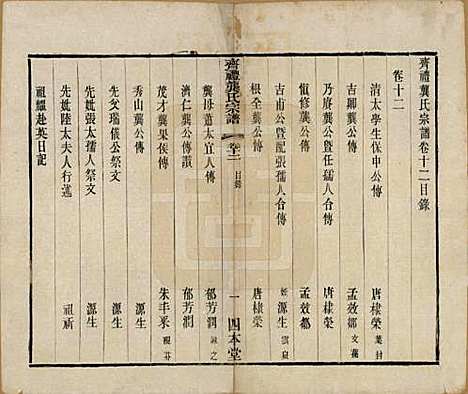 齊禮龔氏宗譜卷十二目錄
卷十二
清太學生保申公傳 唐棣榮 葉封
吉卿龔公傳 孟效鄒 文藻
乃賡龔公暨任孺人合傳 唐棣榮
愼修龔公傳 孟效鄒
吉甫公暨配張孺人合傳 姪 源生 雲泉
根全龔公傳 唐棣榮
齊禮龔氏宗譜 卷十二 目錄 一 四本堂
龔母蕭太宜人傳 郁芳潤 詠之
濟仁龔公傳讚 郁芳潤
茂才龔果侯傳 朱丰采 硯芬
秀山龔公傳 源生
先文瑞儀公祭文 源生
先妣張太孺人祭文 源生
先妣陸太夫人行述 祖新
祖繩赴英日記